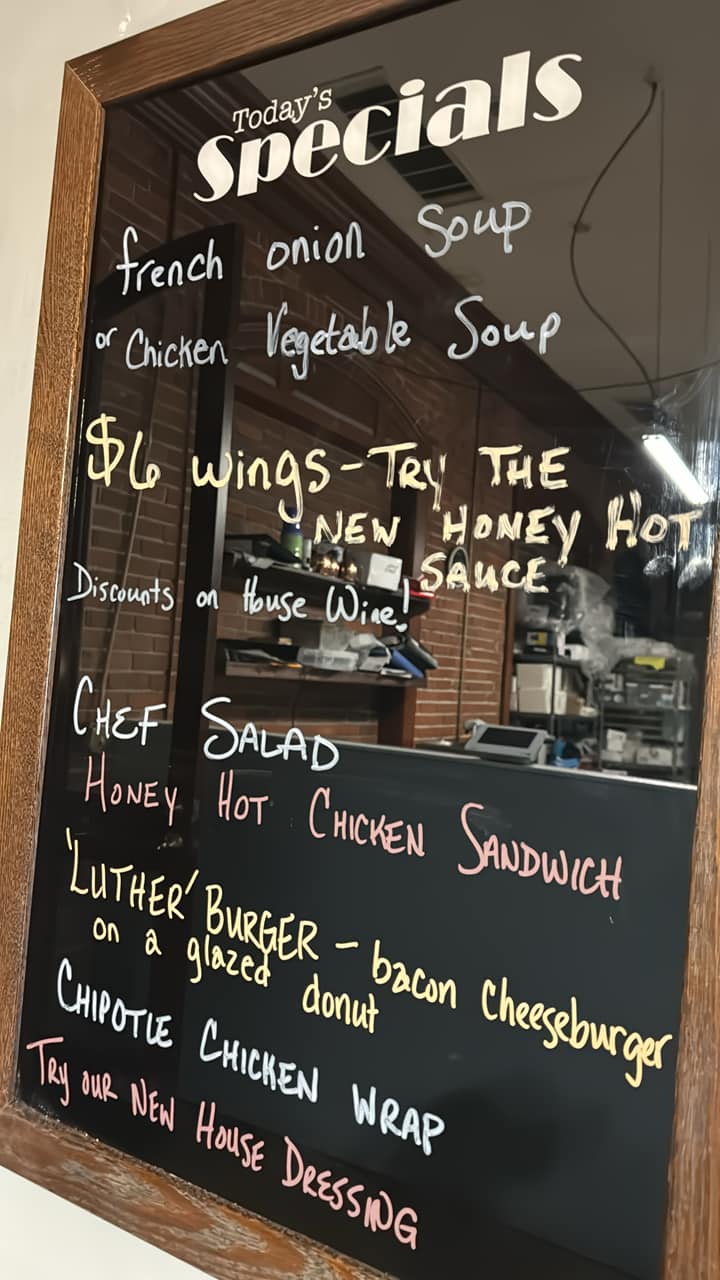 Today's
Specials
french onion Soup
or Chicken Vegetable Soup
$6 wings - TRY THE
NEW HONEY HOT
SAUCE
Discounts on House Wine!
CHEF SALAD
HONEY HOT CHICKEN SANDWICH
'LUTHER' BURGER - bacon Cheeseburger
on a glazed donut
CHIPOTLE CHICKEN WRAP
TRY OUR NEW HOUSE DRESSING